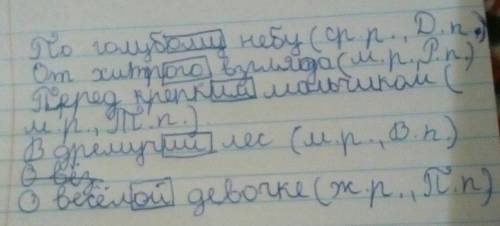 По голубому небу (ср.р., Д.п.)
От хитрого взгляда (м.р., Р.п)
Перед крепкий мальчиком (
м.р., Т.п.)
В дремучий лес (м.р., В.п.)
О вес
О весёлой девочке (ж.р., П.п)